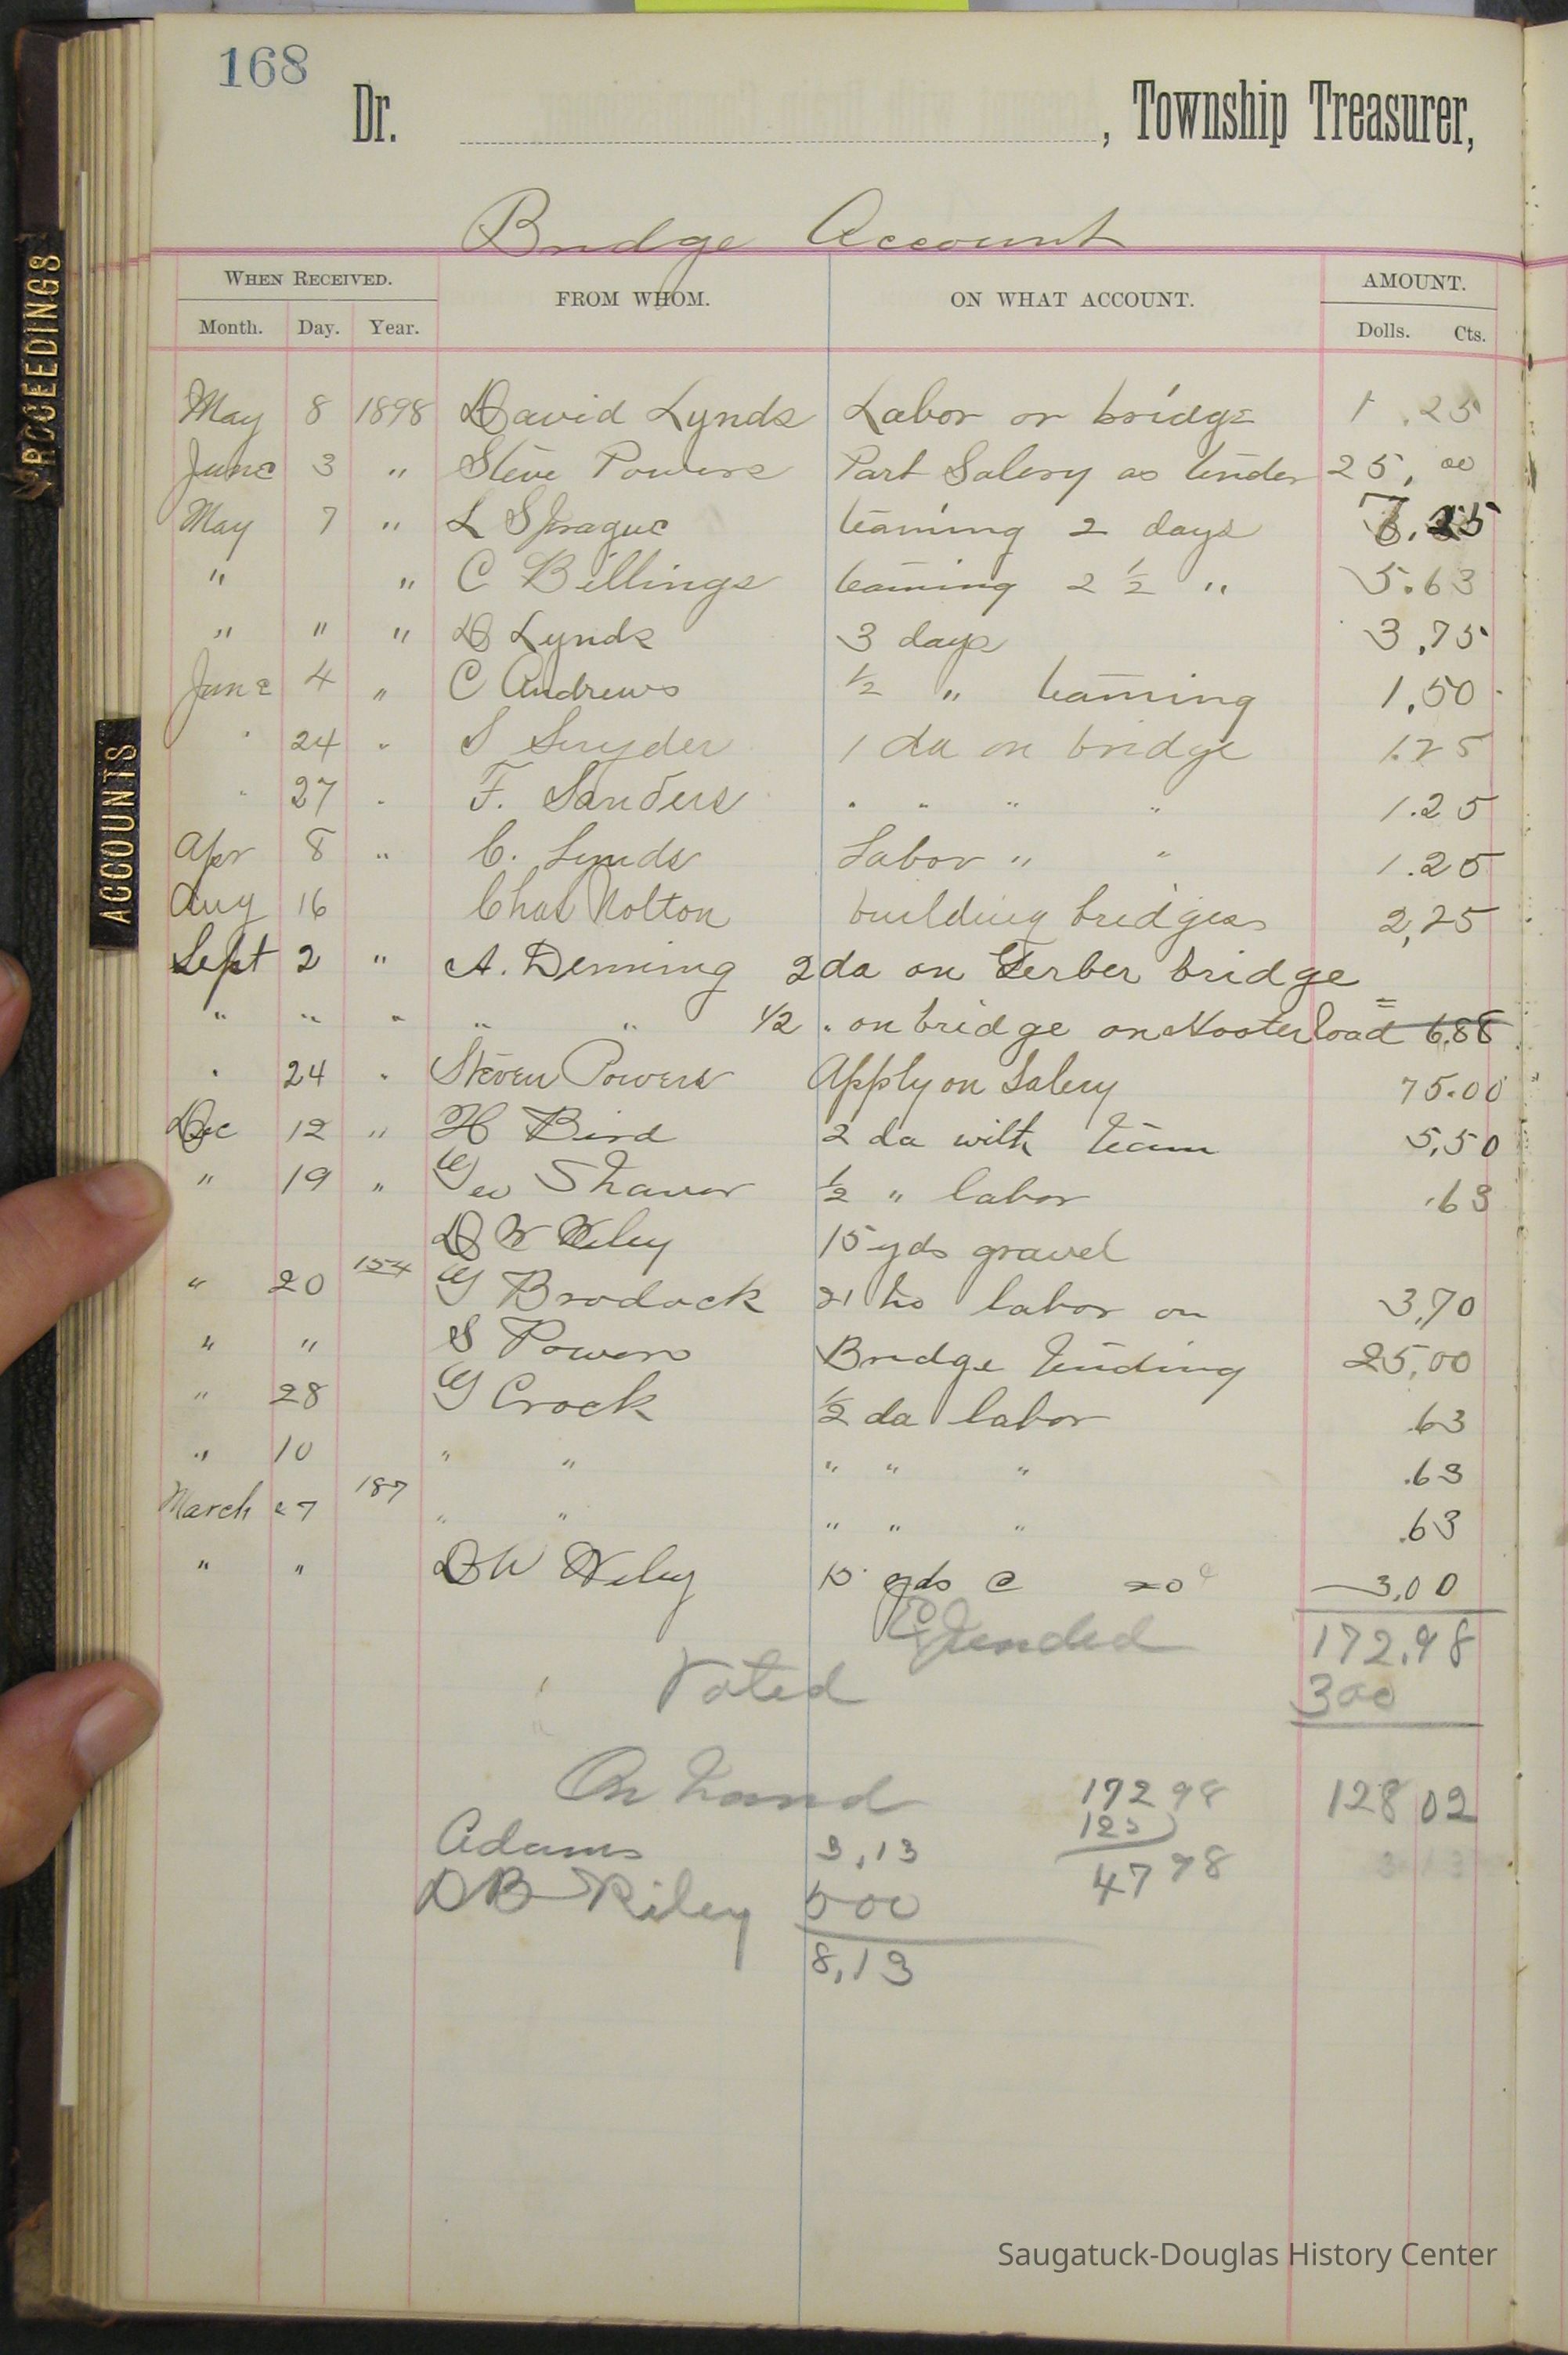 168
Dr. , Township Treasurer,
Bridge Account
WHEN RECEIVED. FROM WHOM. ON WHAT ACCOUNT. AMOUNT.
Month. Day. Year. Dolls. Cts.
May 8 1898 David Lynds Labor on bridge 1.25
June 3 " Steve Powers Part Salery as tender 25.00
May 7 " L Sprague teaming 2 days
" " C Billings teaming 2 1/2 " 5.63
" " " D Lynds 3 days 3.75
June 4 " C Andrews 1/2 " teaming 1.50
" 24 " S Snyder 1 da on bridge 1.25
" 27 " F. Sanders " " " " 1.25
Apr 8 " C. Lynds Labor " " 1.25
Aug 16 Chas Nolton building bridges 2,25
Sept 2 " A. Deming 2 da on Gerber bridge
" " " " " 1/2 " on bridge on road = 6.88
" 24 " Steven Powers Apply on Salery 75.00
Dec 12 " H Bird 2 da with team 5,50
" 19 " Geo Shaver 1/2 " labor .63
D W Wiley 15 yds gravel
" 20 154 G Brodock 21 hs labor on 3,70
" " S Powers Bridge tending 25,00
" 28 G Crock 1/2 da labor .63
" 10 " " " " " .63
March 27 187 " " " " " .63
" " D W Wiley 15 yds @ 20 c 3,00
Expended 172.98
Voted 300
On hand 172 98 128 02
Adams 3,13 125
D B Riley 5 00 47 98
8,13
PROCEEDINGS
ACCOUNTS
Saugatuck-Douglas History Center